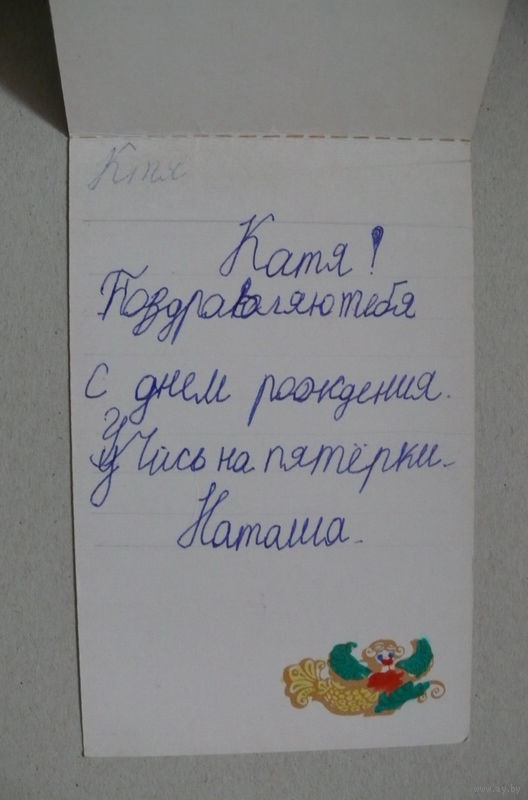 Ктя
Катя!
Поздравляю тебя
с днем рождения.
Учись на пятёрки.
Наташа.
www.ay.by